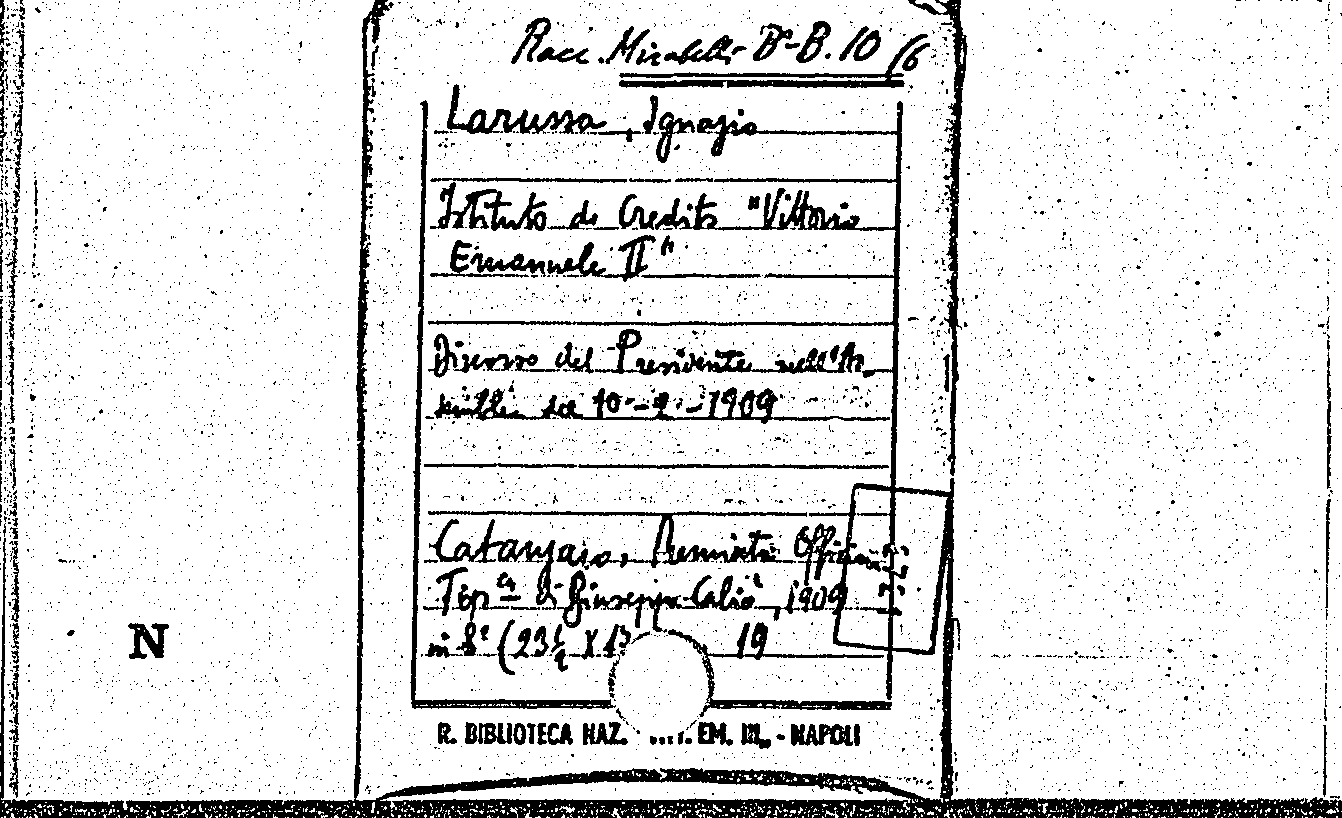 Racc. Mirabelli Bª-B. 10/6
Larussa, Ignazio
Istituto di Credito "Vittorio
Emanuele II"
Discorso del Presidente nell'As_
semblea del 10-2-1909
Catanzaro, Premiata Officina
Tipᶜᵃ di Giuseppe Caliò, 1909
in 8° (23½ X 1 19
N
R. BIBLIOTECA NAZ. EM. III. - NAPOLI